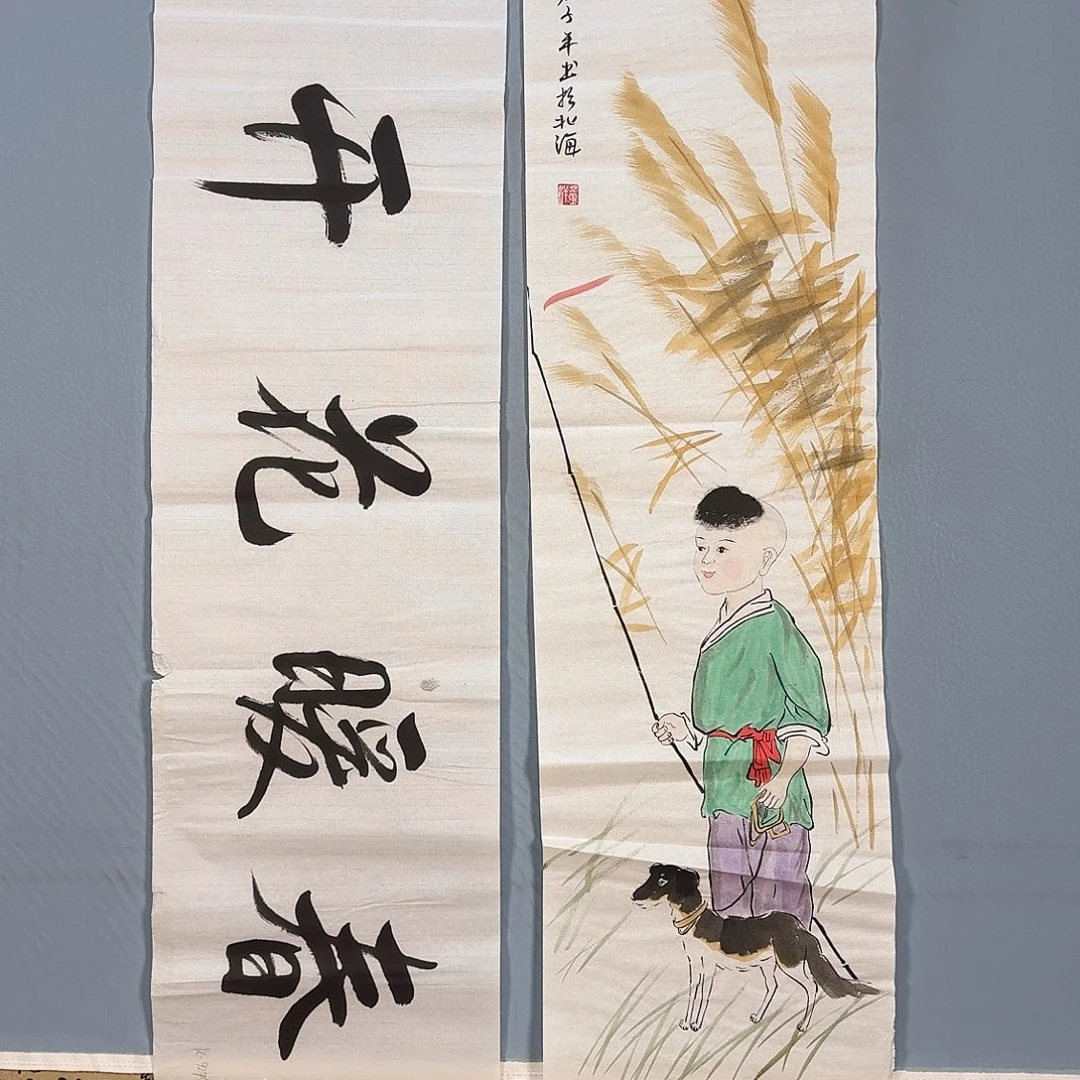 春暖花开
子年出於北海